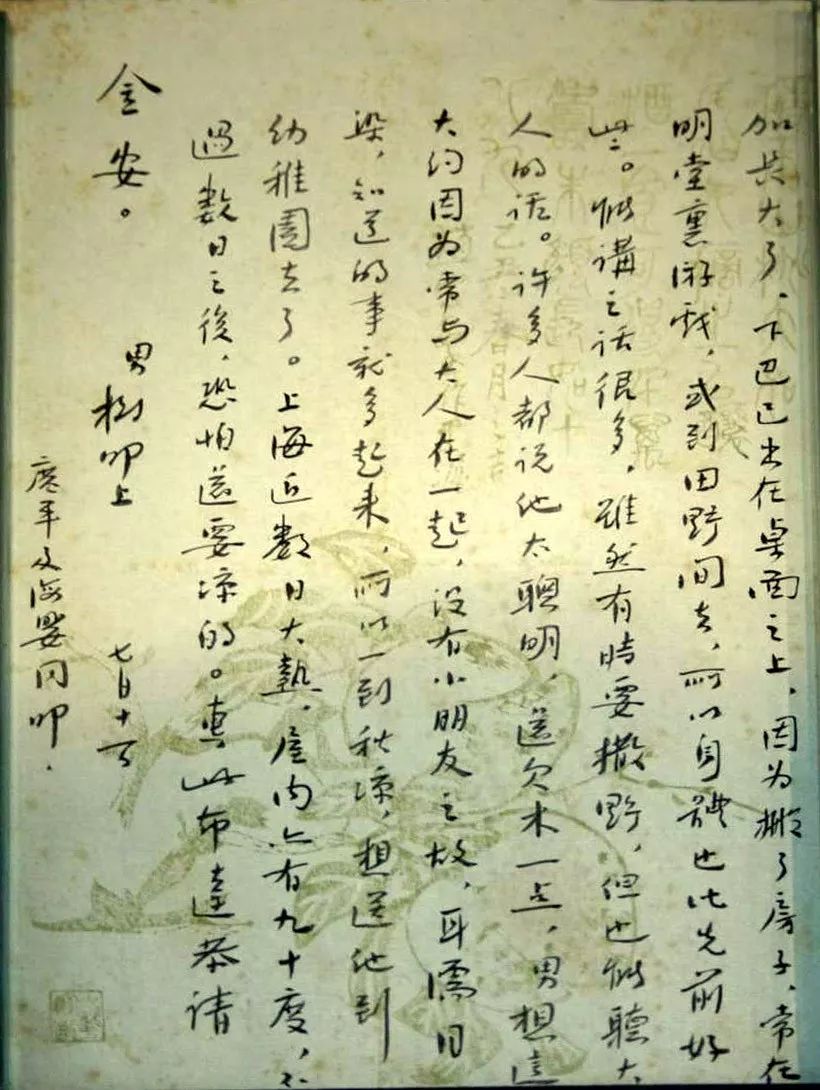 加長大了、下巴已出在桌面之上，因为搬了房子、常在
明堂裏游戏，或到田野间去，所以身體也比先前好
些。能講之话很多，雖然有時要撒野，但也能聽大
人的话。许多人都说他太聰明，還欠木一点，男想這
大约因为常与大人在一起，没有小朋友之故，耳濡目
染，知道的事就多起来，所以一到秋凉，想送他到
幼稚園去了。上海近數日大熱，屋内亦有九十度，不
過數日之後，恐怕還要凉的。專此布達恭请
金安。
男樹叩上 七月十一日
廣平及海嬰同叩.